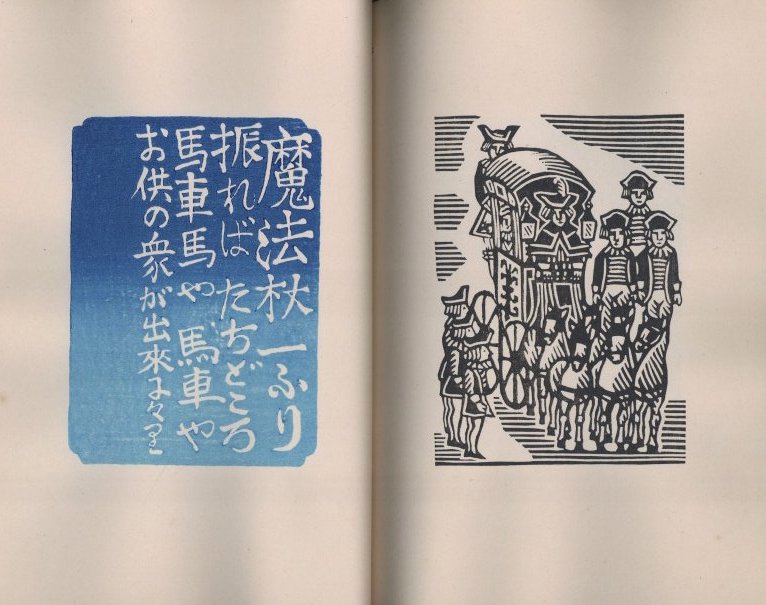 魔法杖一ふり
振ればたちどころ
馬車馬や馬車や
お供の衆が出來